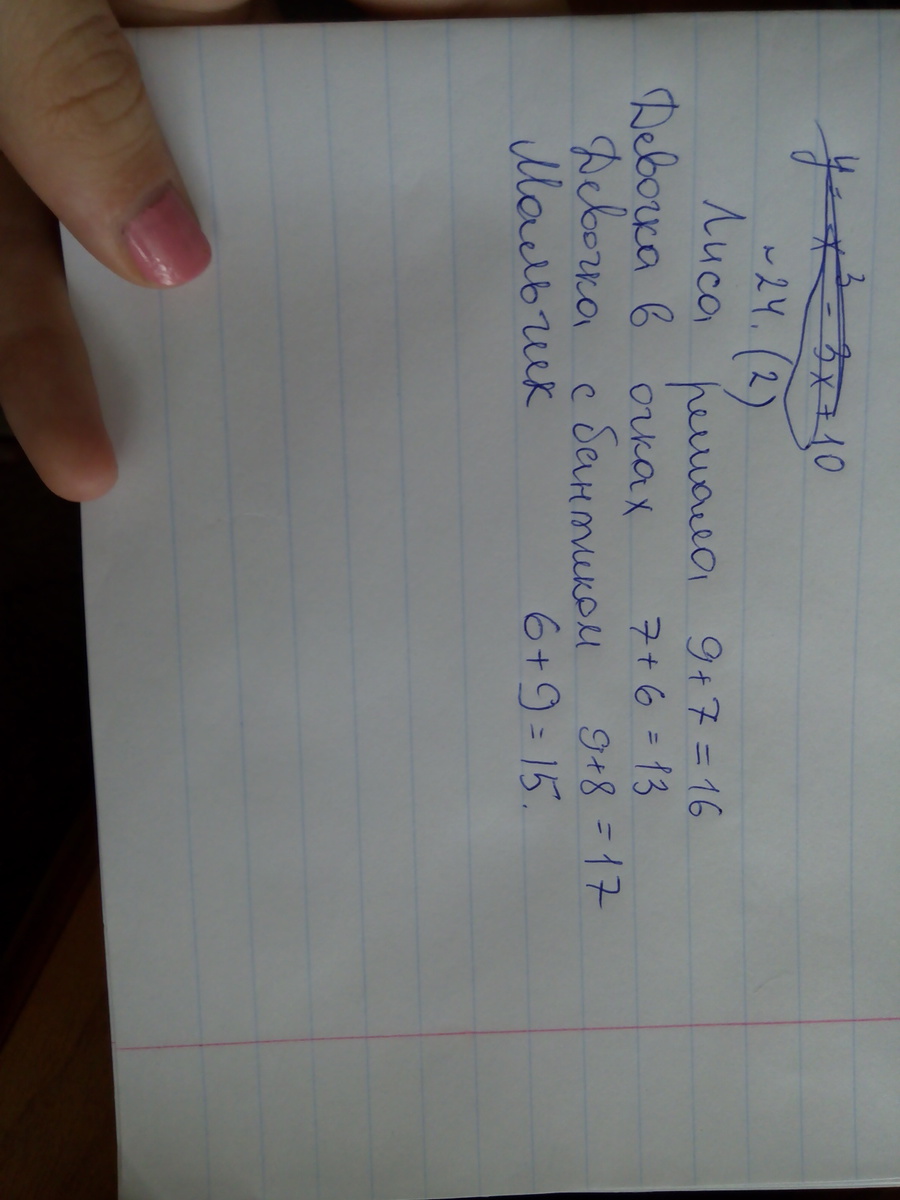 y = x³ - 3x + 10
~ 24. (2)
Лиса решала 9+7=16
Девочка в очках 7+6=13
Девочка с бантиком 9+8=17
Мальчик 6+9=15.